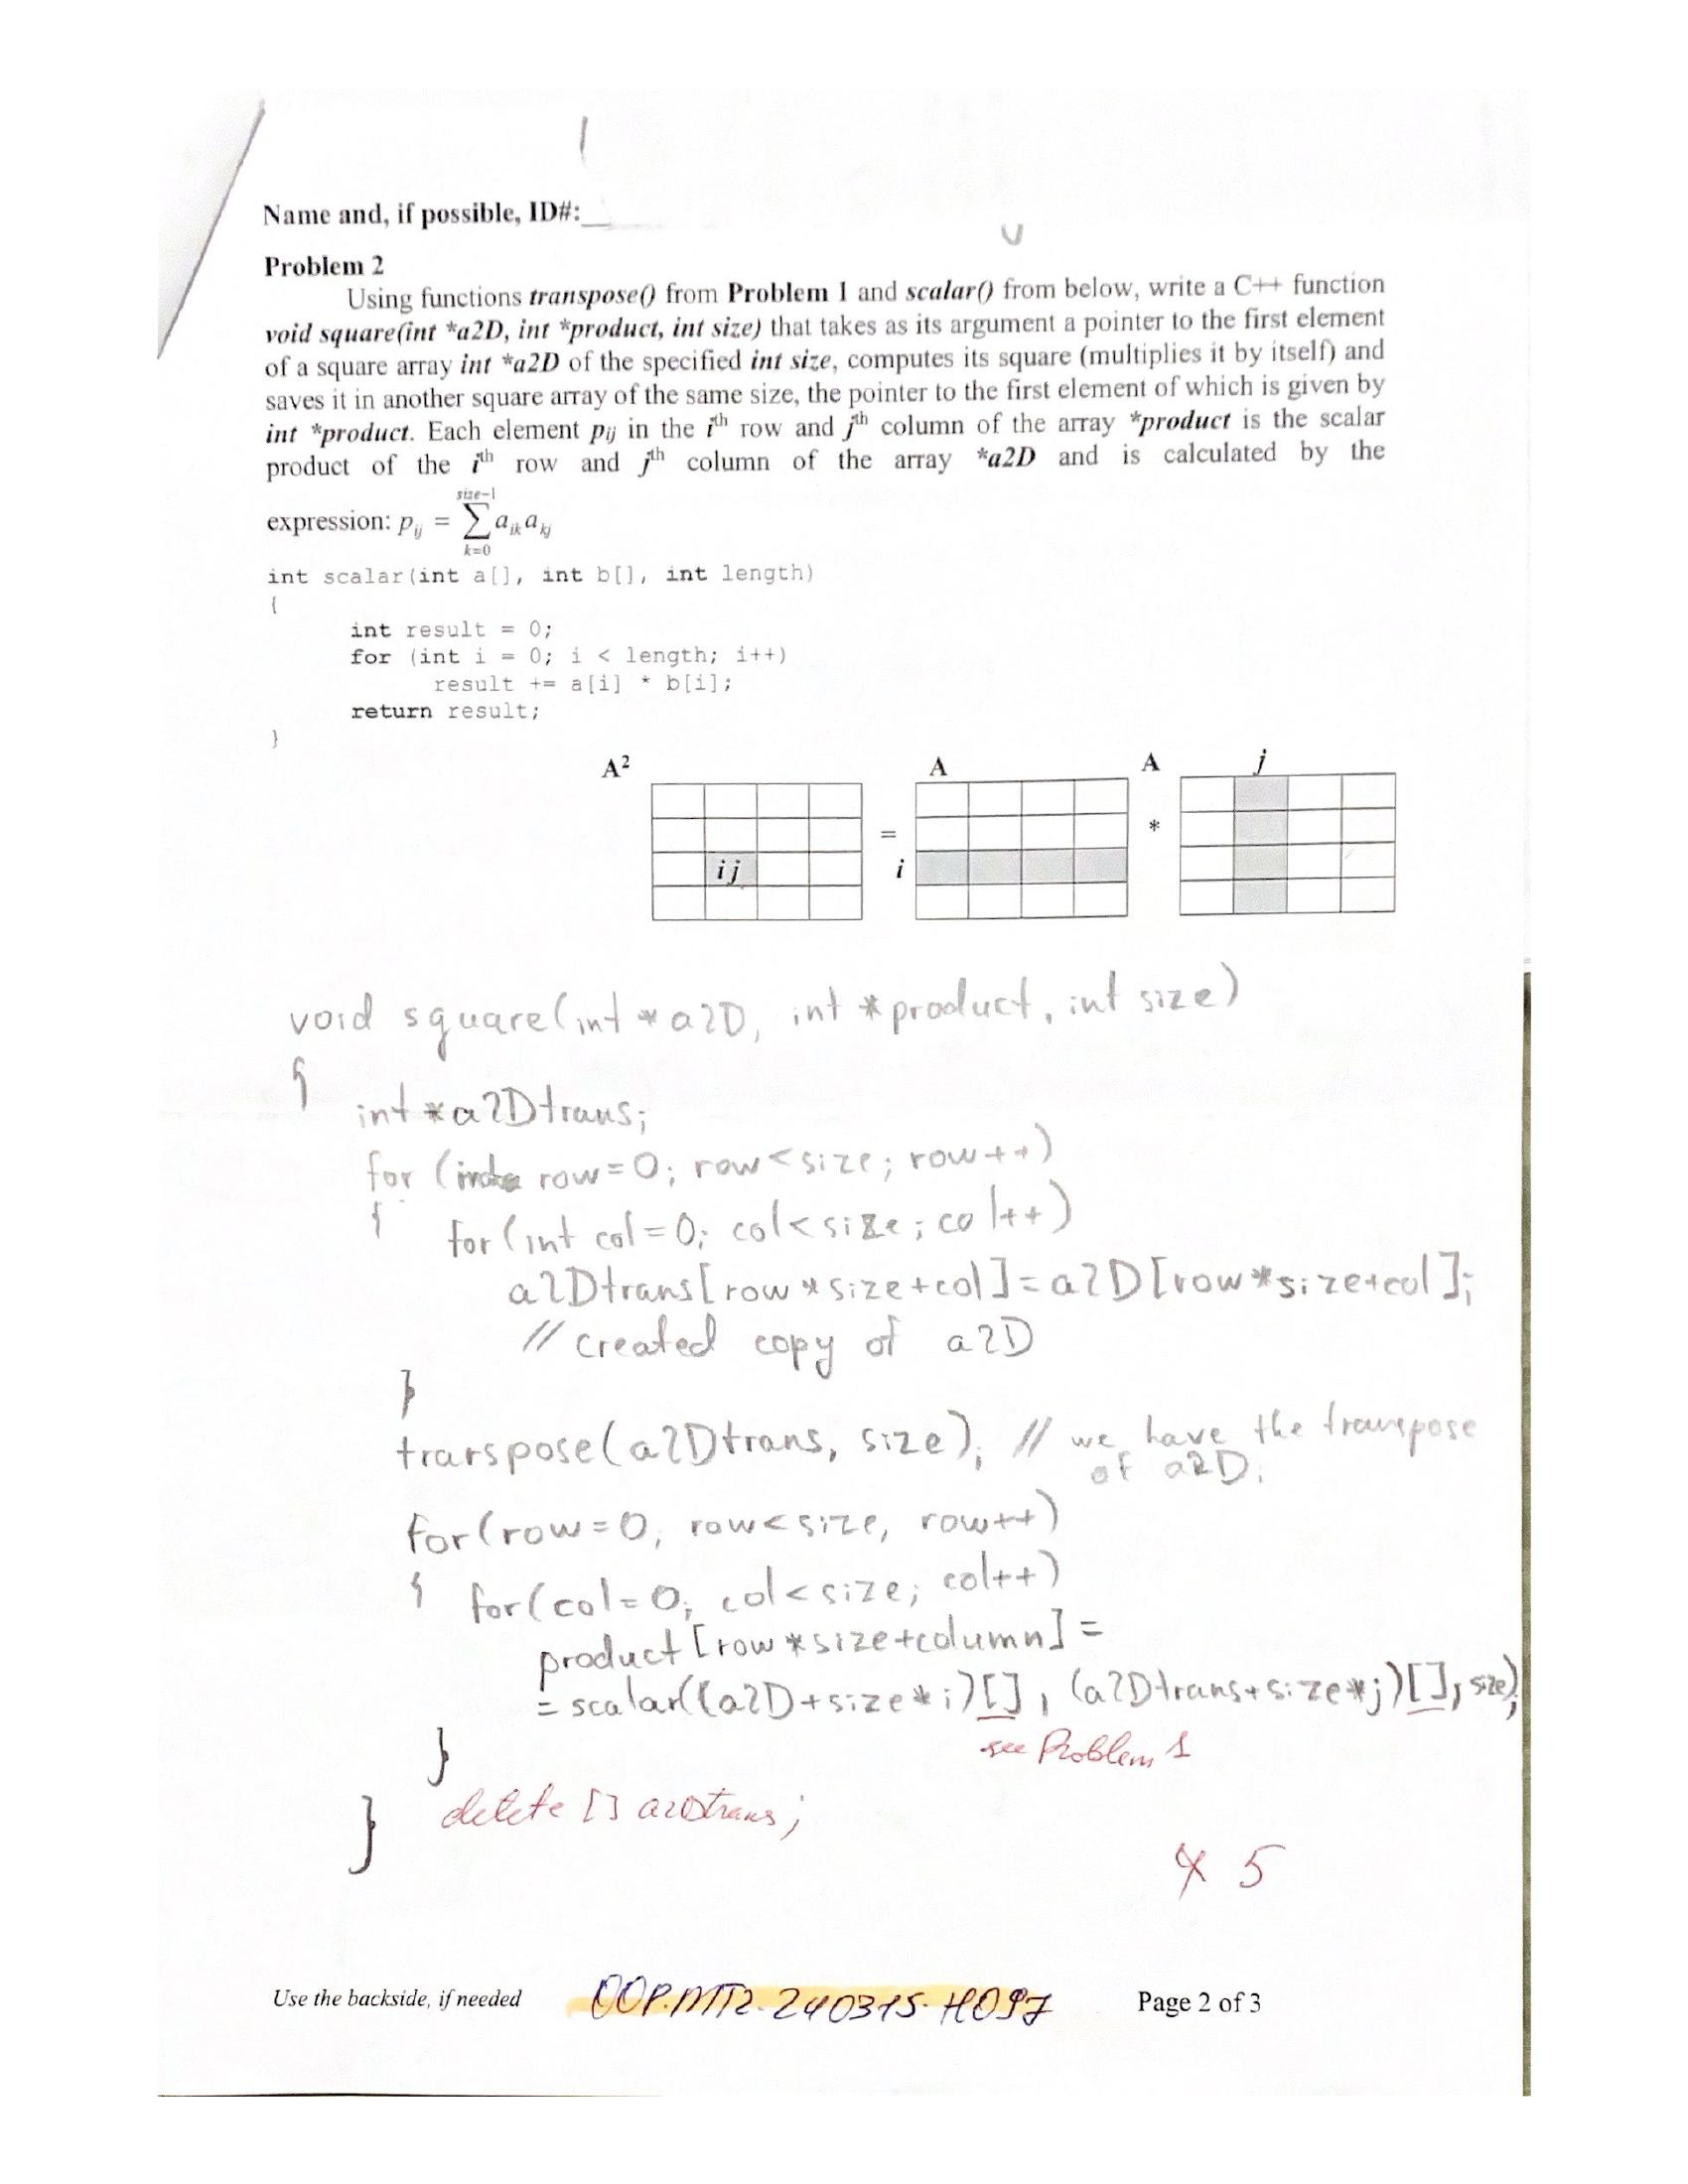 Name and, if possible, ID#:
Problem 2
Using functions transpose() from Problem 1 and scalar() from below, write a C++ function
void square(int *a2D, int *product, int size) that takes as its argument a pointer to the first element
of a square array int *a2D of the specified int size, computes its square (multiplies it by itself) and
saves it in another square array of the same size, the pointer to the first element of which is given by
int *product. Each element pij in the ith row and jth column of the array *product is the scalar
product of the ith row and jth column of the array *a2D and is calculated by the
size-1
expression: pij = ∑ aik akj
k=0
int scalar(int a[], int b[], int length)
{
int result = 0;
for (int i = 0; i < length; i++)
result += a[i] * b[i];
return result;
}
A² A A j
= *
ij i
void square(int *a2D, int *product, int size)
{
int *a2Dtrans;
for ( row=0; row<size; row++)
{ for(int col=0; col<size; col++)
a2Dtrans[row*size+col]=a2D[row*size+col];
// created copy of a2D
}
transpose(a2Dtrans, size); // we have the transpose
of a2D.
for(row=0; row<size, row++)
{ for(col=0; col<size; col++)
product[row*size+column]=
=scalar((a2D+size*i)[], (a2Dtrans+size*j)[], size);
see Problem 1
}
delete [] a2Dtrans;
}
5
Use the backside, if needed OOP.MT2.240315.H097 Page 2 of 3